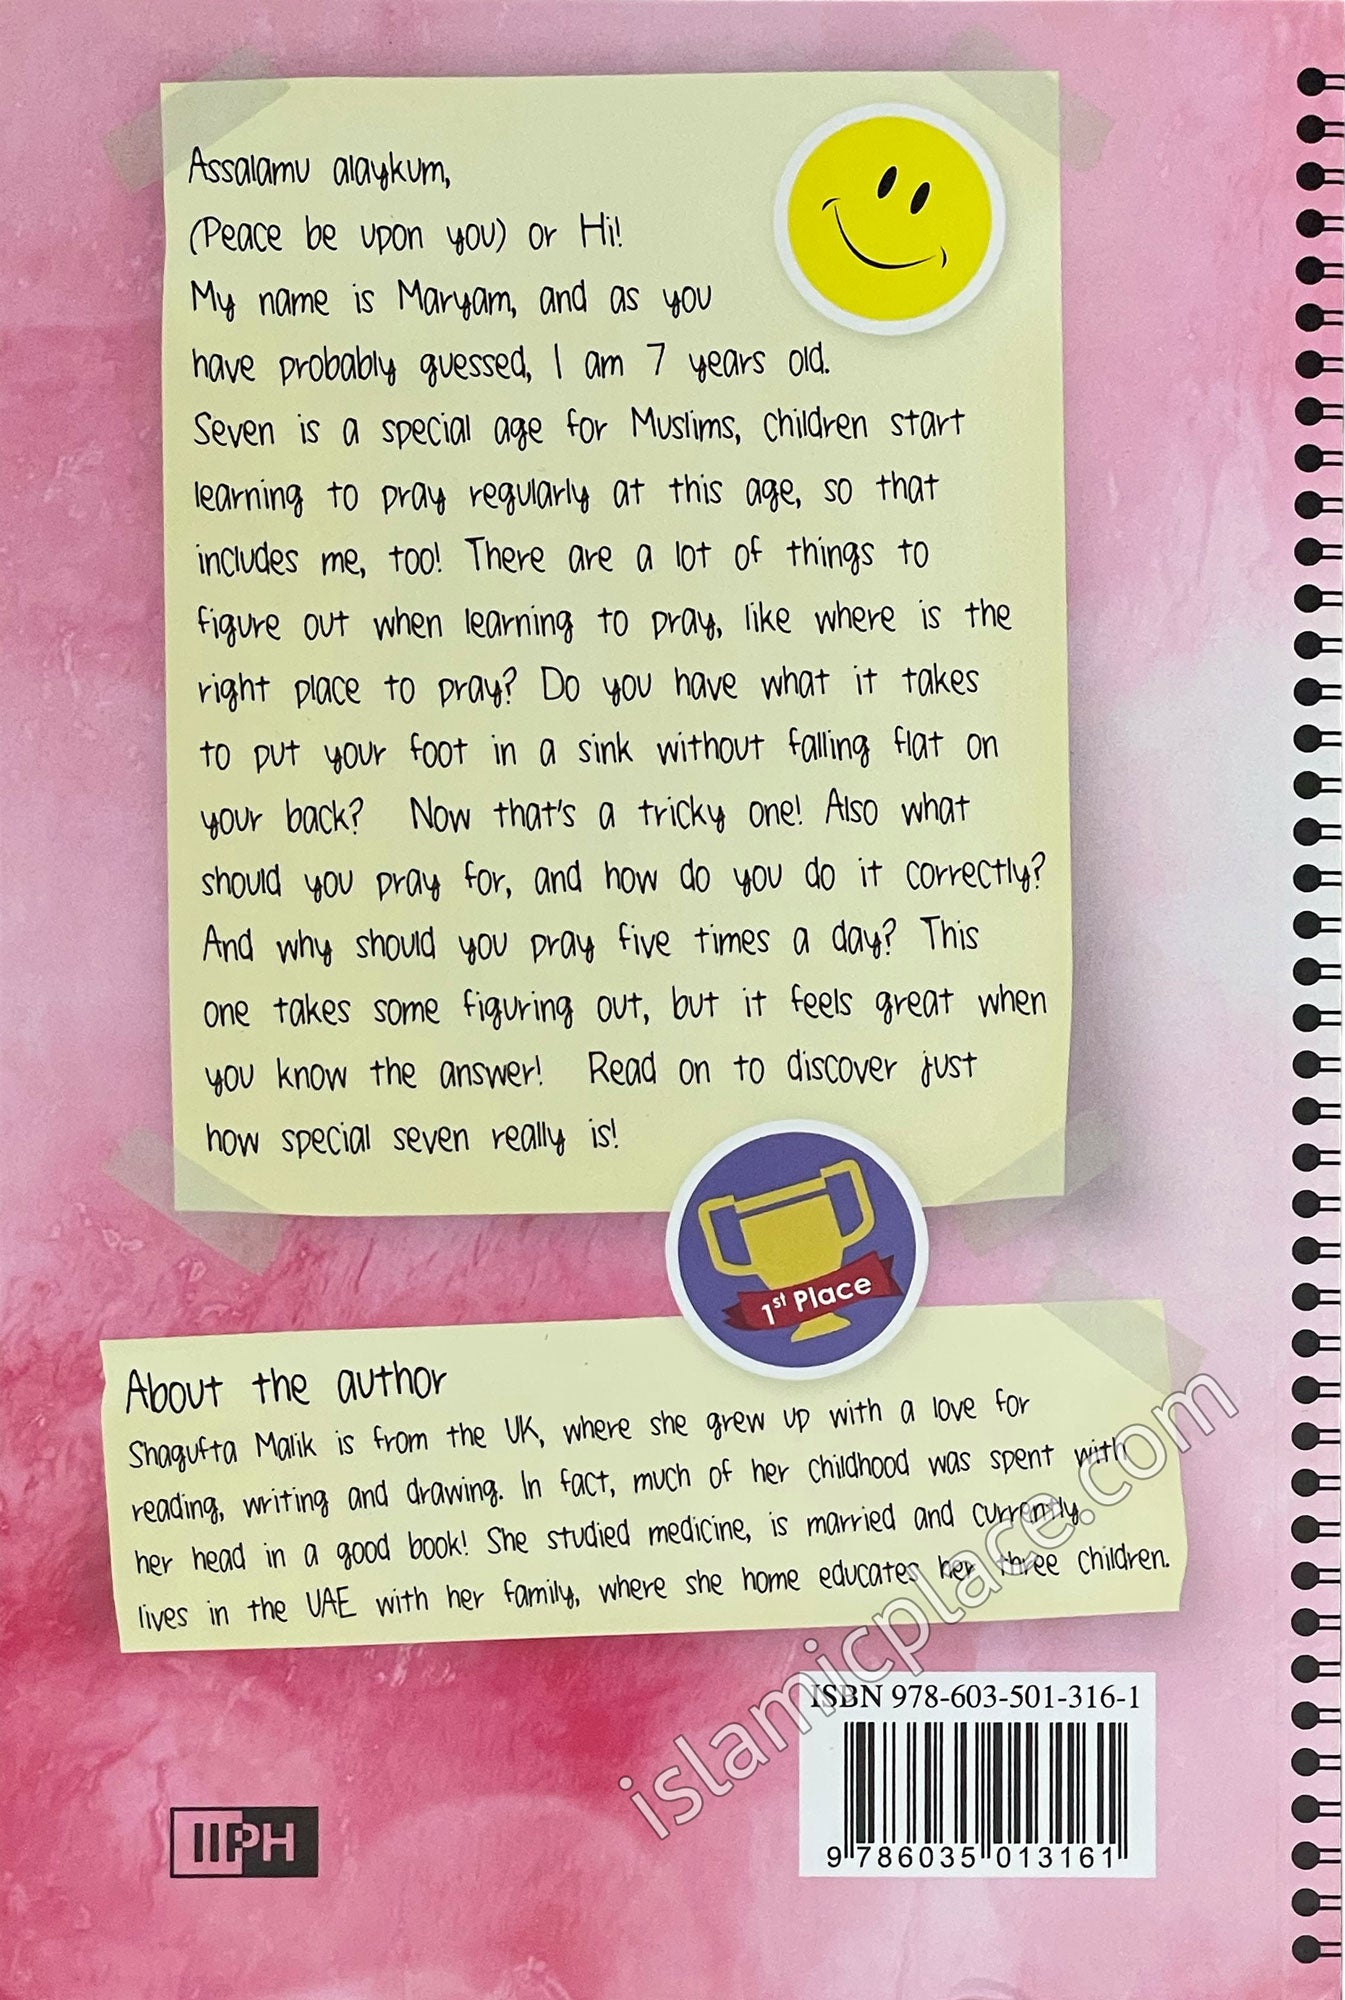 Assalamu alaykum,
(Peace be upon you) or Hi!
My name is Maryam, and as you
have probably guessed, I am 7 years old.
Seven is a special age for Muslims, children start
learning to pray regularly at this age, so that
includes me, too! There are a lot of things to
figure out when learning to pray, like where is the
right place to pray? Do you have what it takes
to put your foot in a sink without falling flat on
your back? Now that's a tricky one! Also what
should you pray for, and how do you do it correctly?
And why should you pray five times a day? This
one takes some figuring out, but it feels great when
you know the answer! Read on to discover just
how special seven really is!
1st Place
About the author
Shagufta Malik is from the UK, where she grew up with a love for
reading, writing and drawing. In fact, much of her childhood was spent with
her head in a good book! She studied medicine, is married and currently
lives in the UAE with her family, where she home educates her three children.
islamicplace.com
ISBN 978-603-501-316-1
9 786035 013161
IIPH